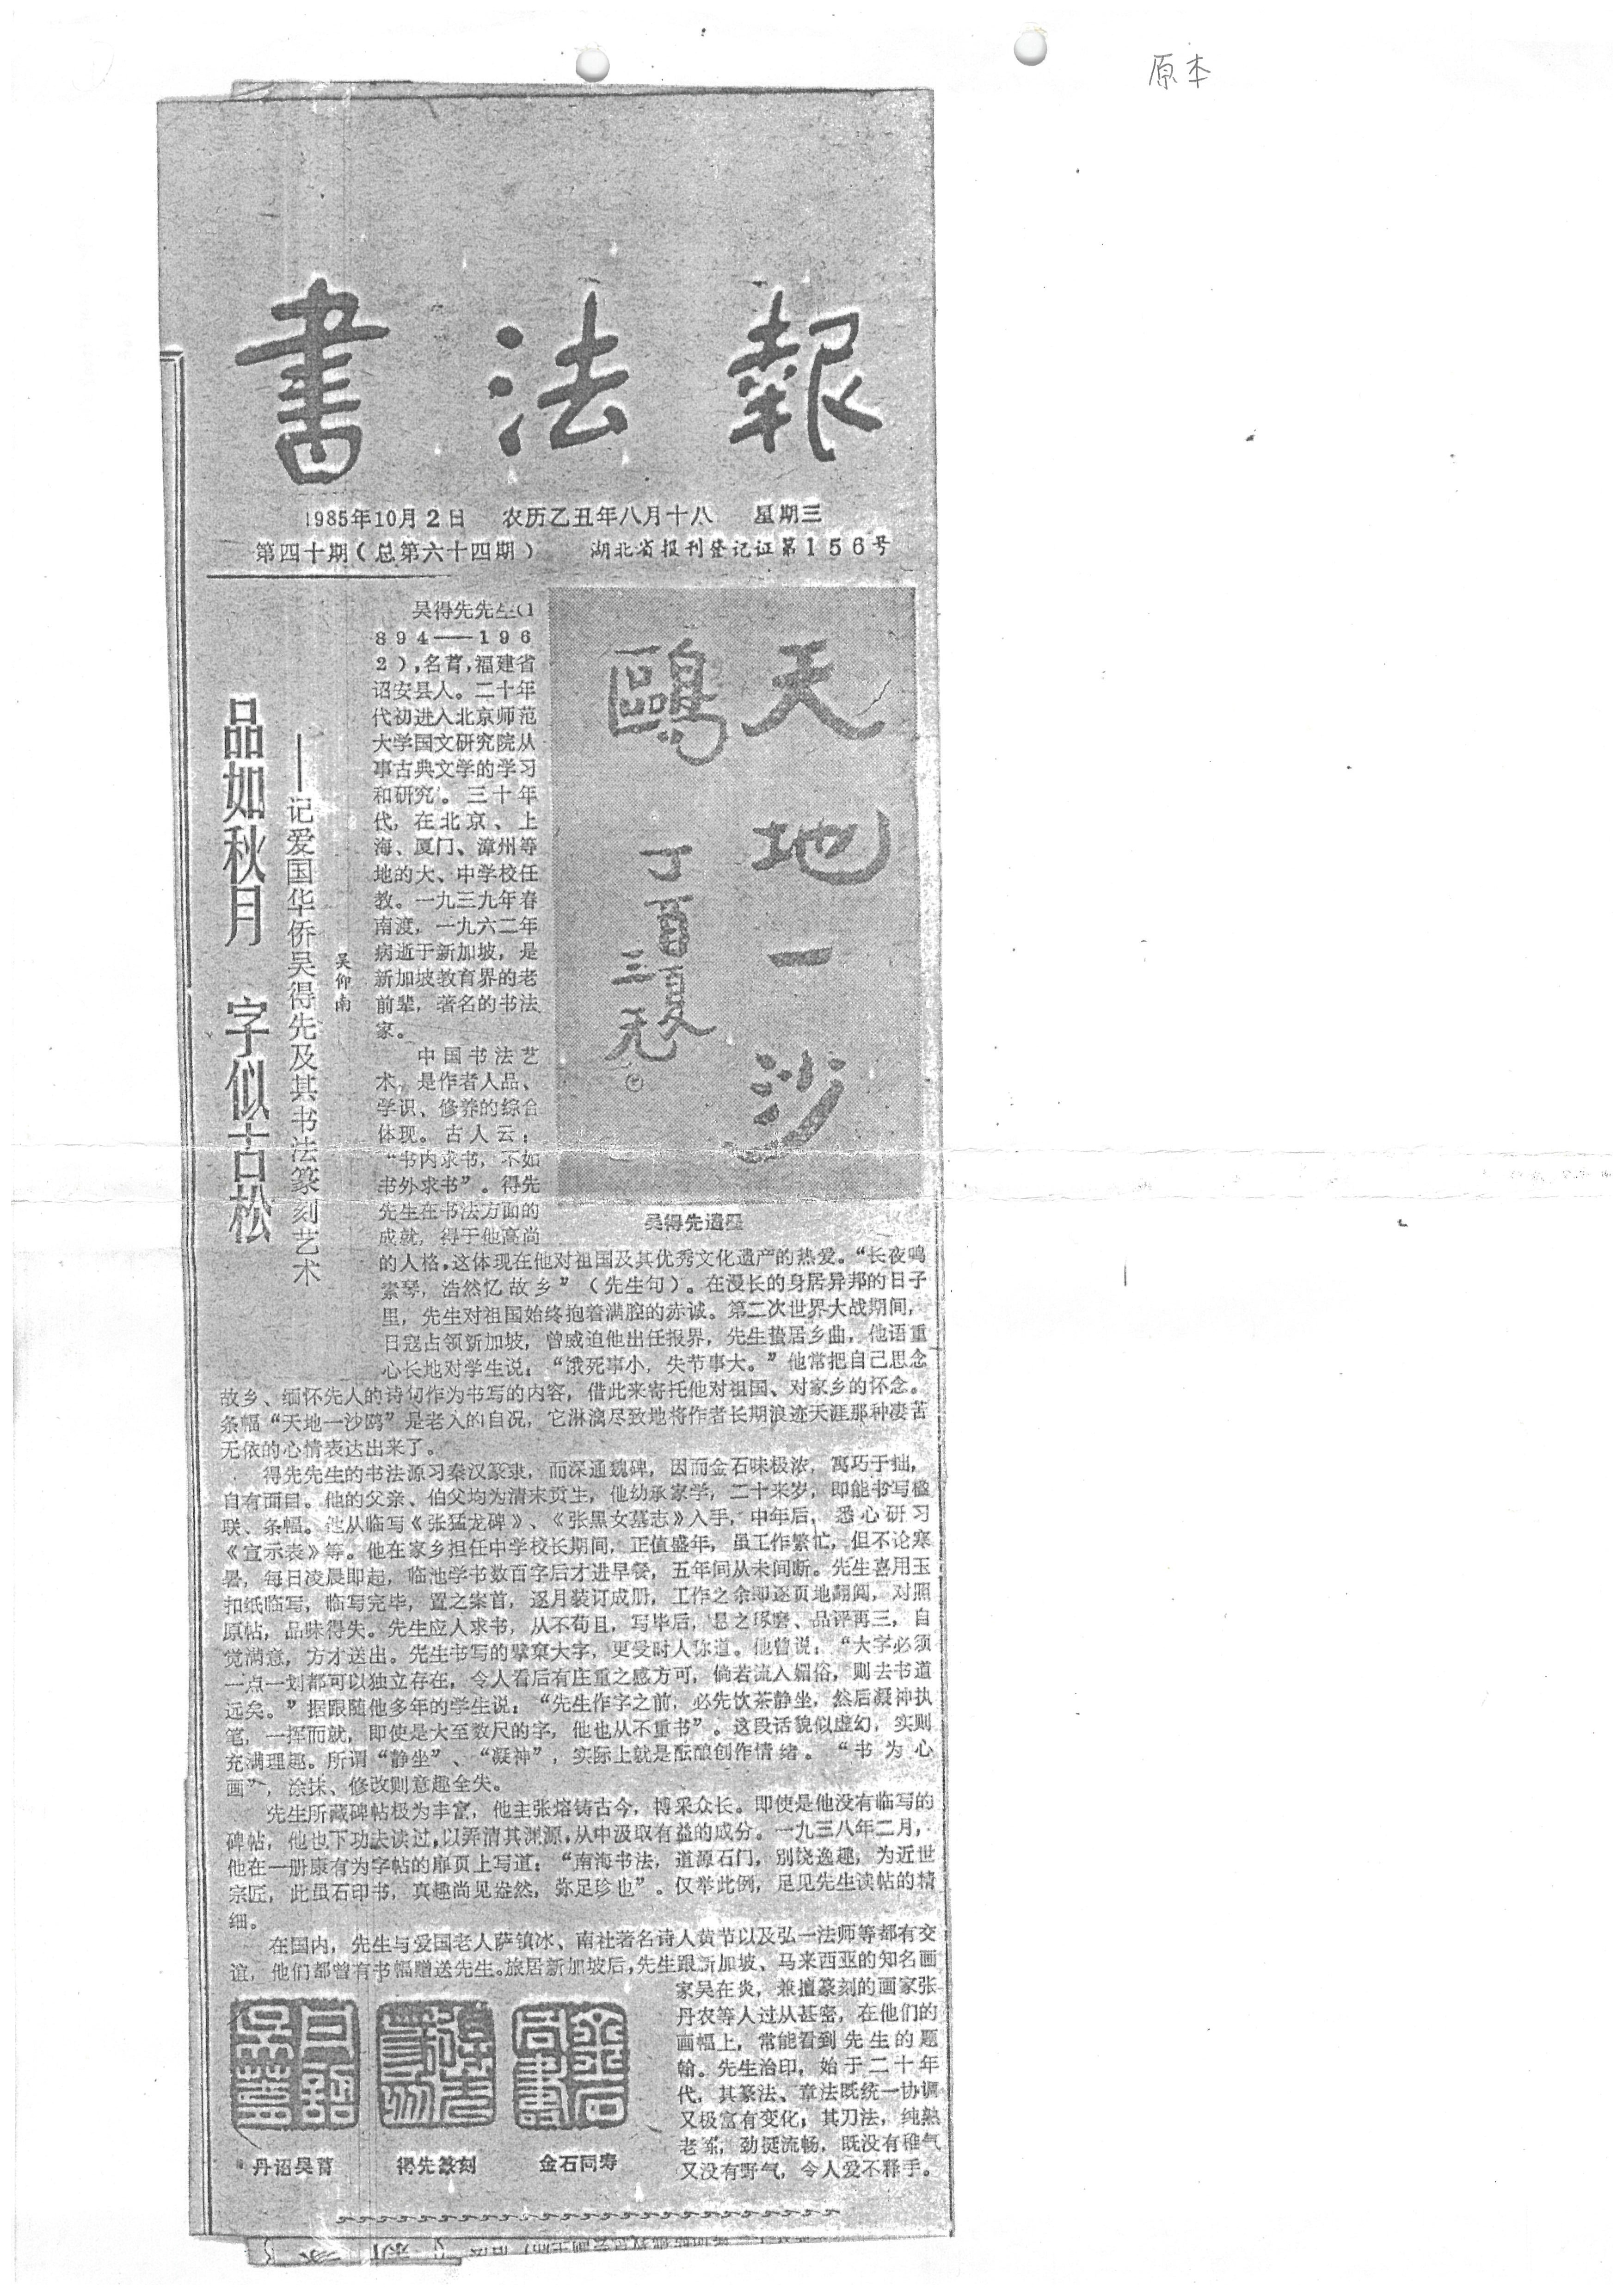 原本
書法報
1985年10月2日 农历乙丑年八月十八 星期三
第四十期(总第六十四期) 湖北省报刊登记证第156号
品如秋月 字似古松
——记爱国华侨吴得先及其书法篆刻艺术
吴仰南
天地一沙
鷗
丁酉夏
三无
吴得先遗墨
吴得先先生(1
894——196
2),名菺,福建省
诏安县人。二十年
代初进入北京师范
大学国文研究院从
事古典文学的学习
和研究。三十年
代,在北京、上
海、厦门、漳州等
地的大、中学校任
教。一九三九年春
南渡,一九六二年
病逝于新加坡,是
新加坡教育界的老
前辈,著名的书法
家。
中国书法艺
术,是作者人品、
学识、修养的综合
体现。古人云:
“书内求书,不如
书外求书”。得先
先生在书法方面的
成就,得于他高尚
的人格,这体现在他对祖国及其优秀文化遗产的热爱。“长夜鸣
素琴,浩然忆故乡”(先生句)。在漫长的身居异邦的日子
里,先生对祖国始终抱着满腔的赤诚。第二次世界大战期间,
日寇占领新加坡,曾威迫他出任报界,先生蛰居乡曲,他语重
心长地对学生说:“饿死事小,失节事大。”他常把自己思念
故乡、缅怀先人的诗句作为书写的内容,借此来寄托他对祖国、对家乡的怀念。
条幅“天地一沙鸥”是老人的自况,它淋漓尽致地将作者长期浪迹天涯那种凄苦
无依的心情表达出来了。
得先先生的书法源习秦汉篆隶,而深通魏碑,因而金石味极浓,寓巧于拙,
自有面目。他的父亲、伯父均为清末贡生,他幼承家学,二十来岁,即能书写楹
联、条幅。他从临写《张猛龙碑》、《张黑女墓志》入手,中年后,悉心研习
《宣示表》等。他在家乡担任中学校长期间,正值盛年,虽工作繁忙,但不论寒
暑,每日凌晨即起,临池学书数百字后才进早餐,五年间从未间断。先生喜用玉
扣纸临写,临写完毕,置之案首,逐月装订成册,工作之余即逐页地翻阅,对照
原帖,品味得失。先生应人求书,从不苟且,写毕后,悬之琢磨、品评再三,自
觉满意,方才送出。先生书写的擘窠大字,更受时人称道。他曾说:“大字必须
一点一划都可以独立存在,令人看后有庄重之感方可,倘若流入媚俗,则去书道
远矣。”据跟随他多年的学生说:“先生作字之前,必先饮茶静坐,然后凝神执
笔,一挥而就,即使是大至数尺的字,他也从不重书”。这段话貌似虚幻,实则
充满理趣。所谓“静坐”、“凝神”,实际上就是酝酿创作情绪。“书为心
画”,涂抹、修改则意趣全失。
先生所藏碑帖极为丰富,他主张熔铸古今,博采众长。即使是他没有临写的
碑帖,他也下功夫读过,以弄清其渊源,从中汲取有益的成分。一九三八年二月,
他在一册康有为字帖的扉页上写道:“南海书法,道源石门,别饶逸趣,为近世
宗匠,此虽石印书,真趣尚见盎然,弥足珍也”。仅举此例,足见先生读帖的精
细。
在国内,先生与爱国老人萨镇冰、南社著名诗人黄节以及弘一法师等都有交
谊,他们都曾有书幅赠送先生。旅居新加坡后,先生跟新加坡、马来西亚的知名画
家吴在炎,兼擅篆刻的画家张
丹农等人过从甚密,在他们的
画幅上,常能看到先生的题
翰。先生治印,始于二十年
代,其篆法、章法既统一协调
又极富有变化;其刀法,纯熟
老练,劲挺流畅,既没有稚气
又没有野气,令人爱不释手。
丹诏吴菺 得先篆刻 金石同寿